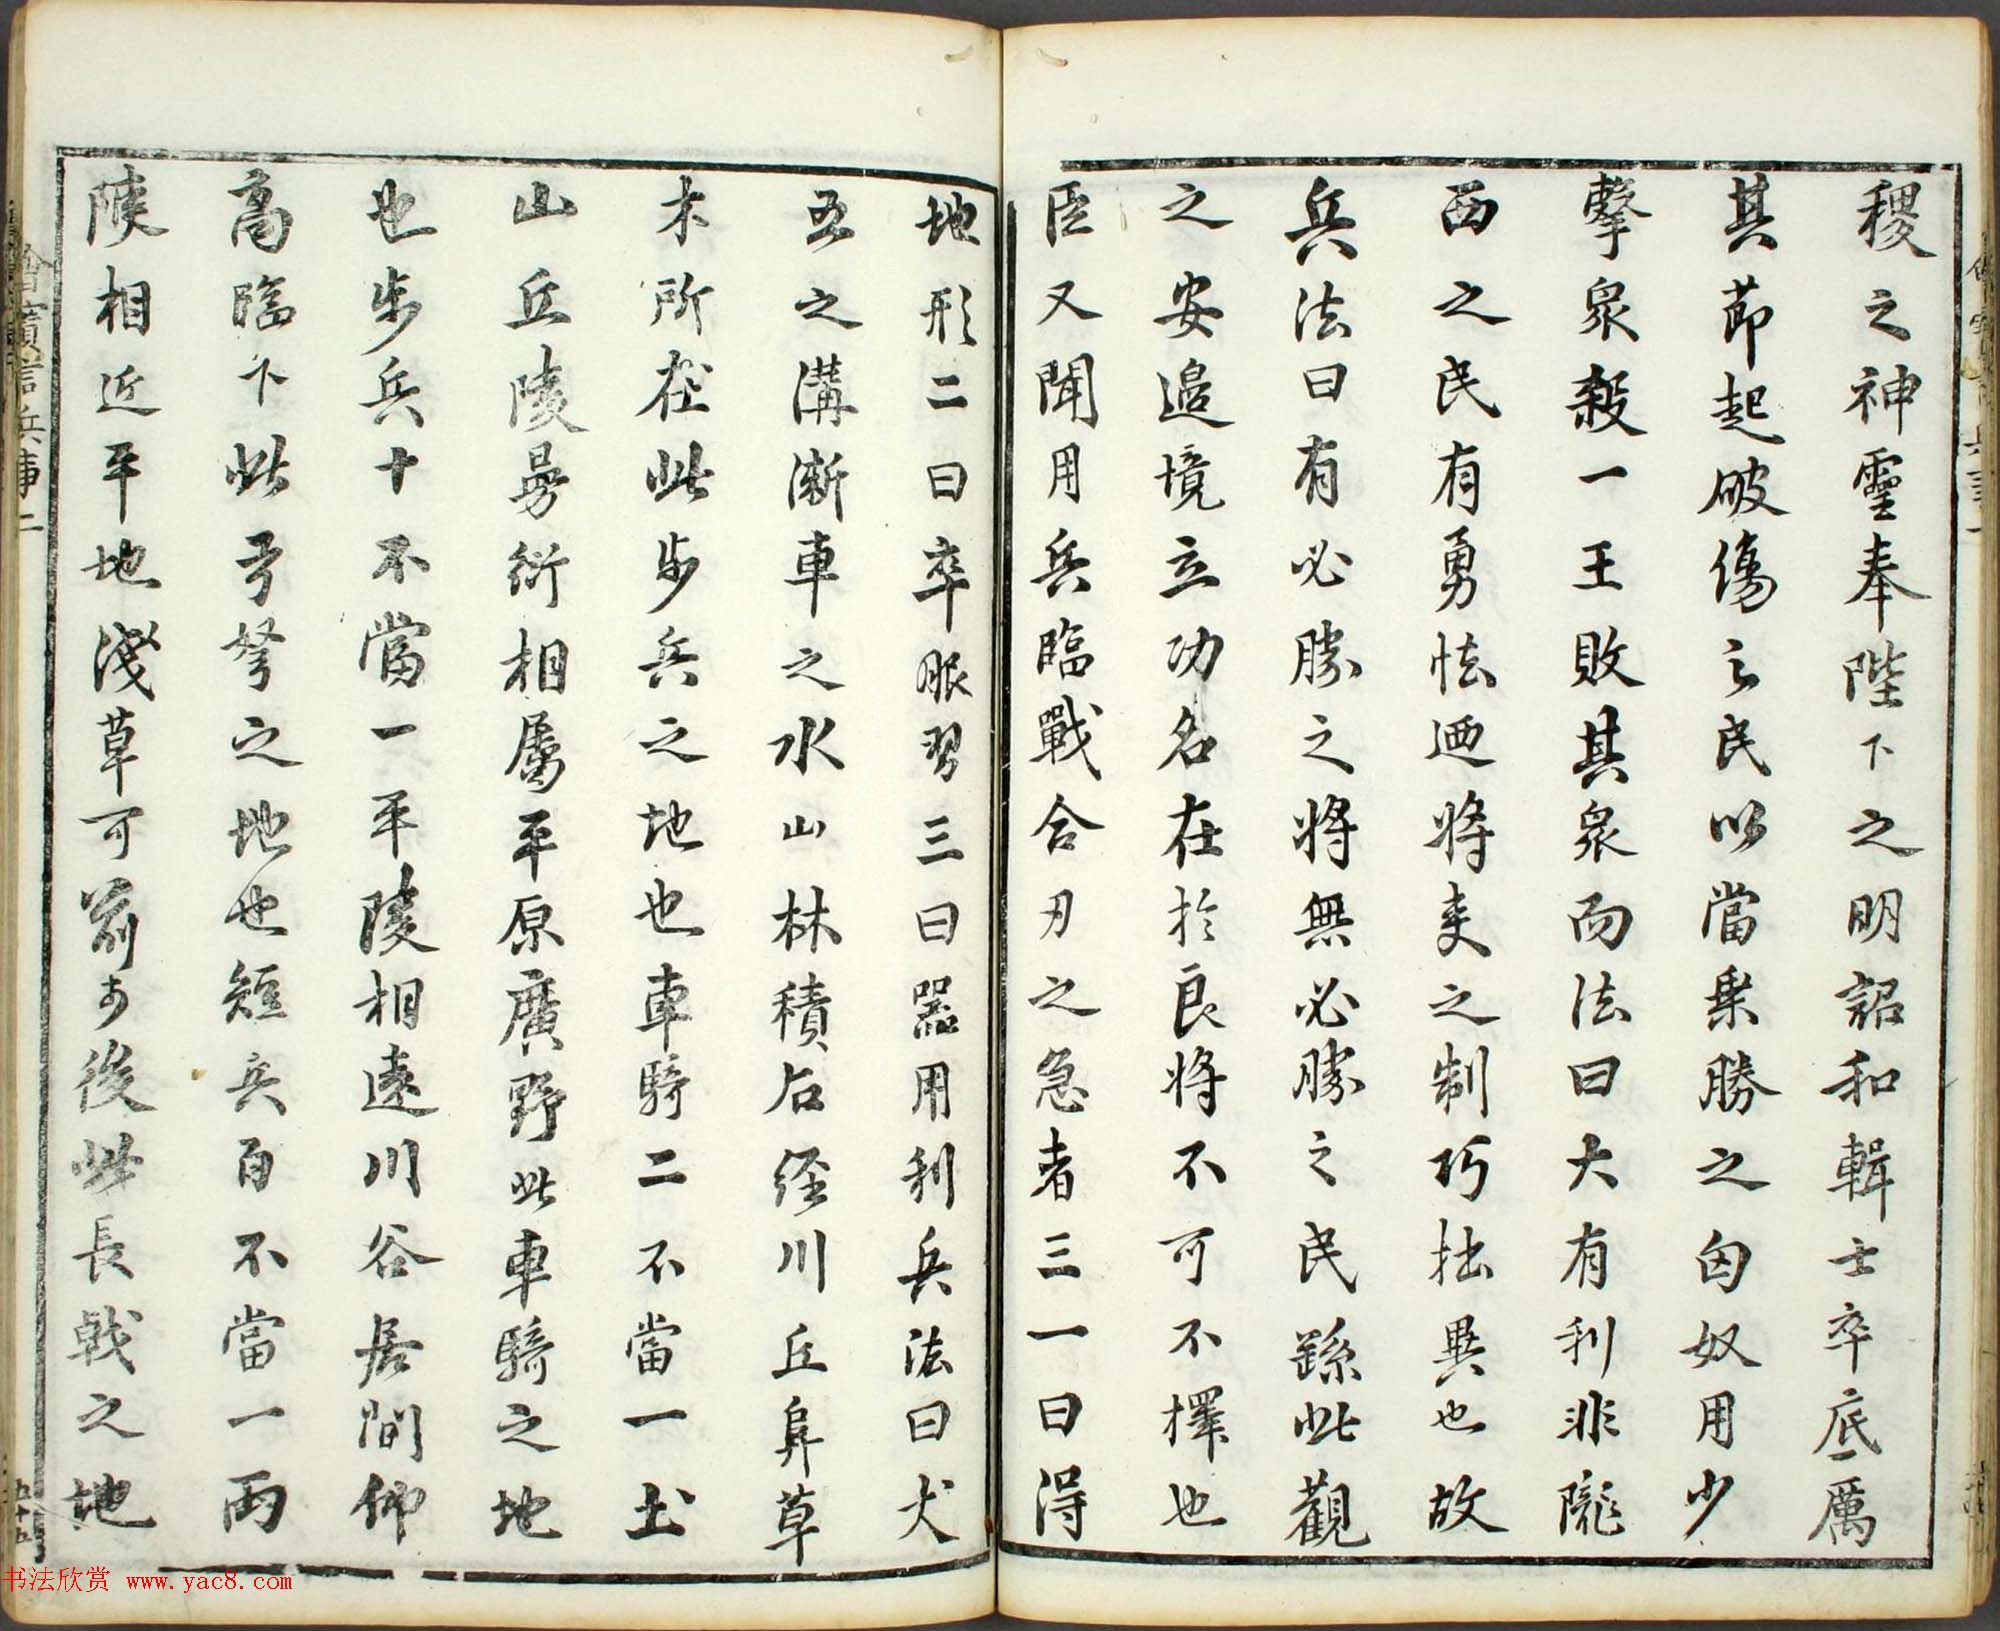 稷之神靈奉陛下之明詔和輯士卒底厲
其節起破傷之民以當乘勝之匈奴用少
擊衆殺一王敗其衆而法曰大有利非隴
西之民有勇怯迺將吏之制巧拙異也故
兵法曰有必勝之將無必勝之民繇此觀
之安邊境立功名在於良將不可不擇也
臣又聞用兵臨戰合刃之急者三一曰得
地形二曰卒服習三曰器用利兵法曰丈
五之溝漸車之水山林積石經川丘阜草
木所在此步兵之地也車騎二不當一土
山丘陵曼衍相屬平原廣野此車騎之地
也步兵十不當一平陵相遠川谷居間仰
高臨下此弓弩之地也短兵百不當一兩
陳相近平地淺草可前可後此長戟之地
言兵事二
五十五
书法欣赏 www.yac8.com